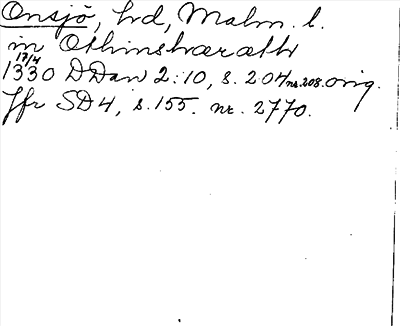 Onsjö, hd, Malm. l.
in Othinshæræth
17/4
1330 DDan 2:10, s. 204 nr. 208. orig.
Jfr SD4, s. 155. nr. 2770.